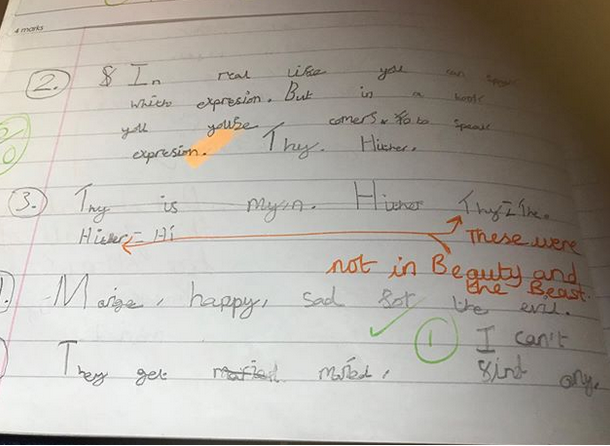 4 marks
2. In real life you can speak
which expresion. But in a book
you youse comers. to speak
expresion. Thy. Hither.
3. Thy is myen. Hither Thy=The.
Hither=Hi These were
not in Beauty and
the Beast.
happy, sad the evil.
1 I can't
They get maried, find any.